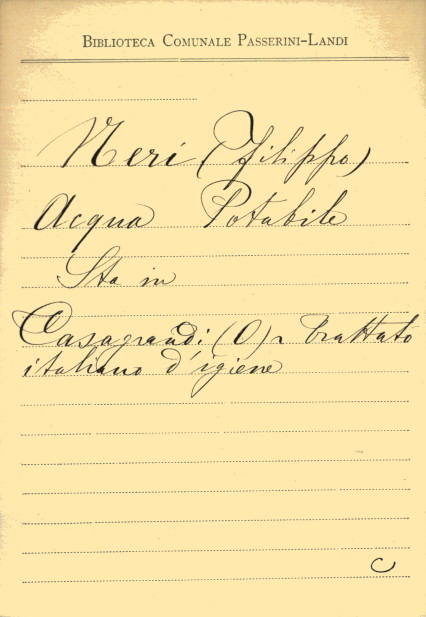 BIBLIOTECA COMUNALE PASSERINI-LANDI
Neri (Filippo)
Acqua Potabile
Sta in
Casagrandi (O) Trattato
italiano d'igiene
C